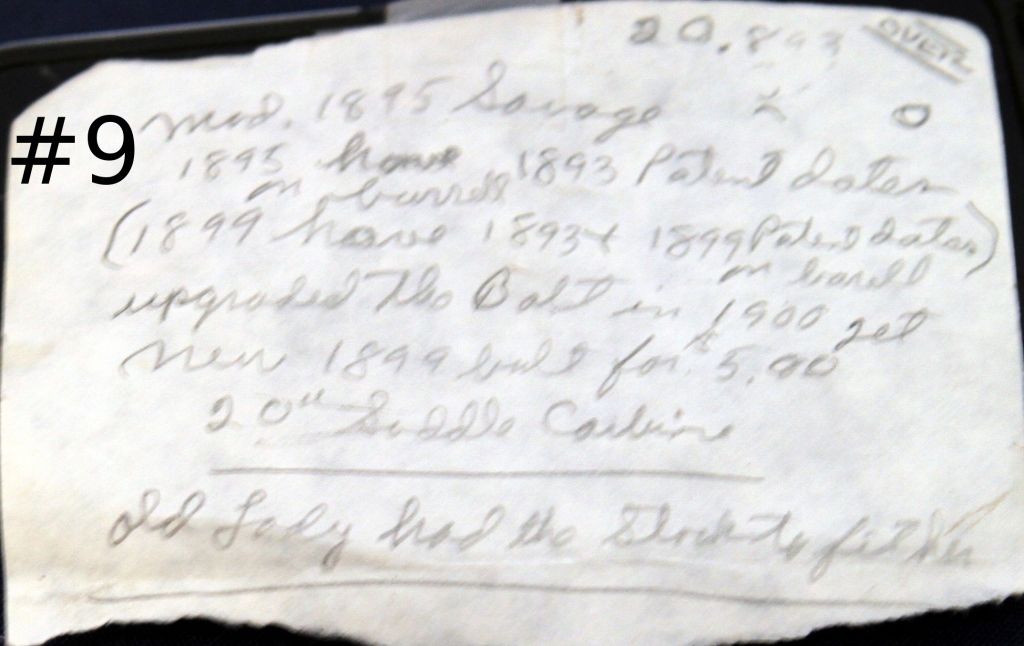 20,893 OVER
#9
Mod. 1895 Savage O
1895 have 1893 Patent dates
on barrell
(1899 have 1893 + 1899 Patent dates)
on barell
upgraded the Bolt in 1900 get
New 1899 bolt for $5.00
20" Saddle Carbine
old Lady had the Stock to fit her